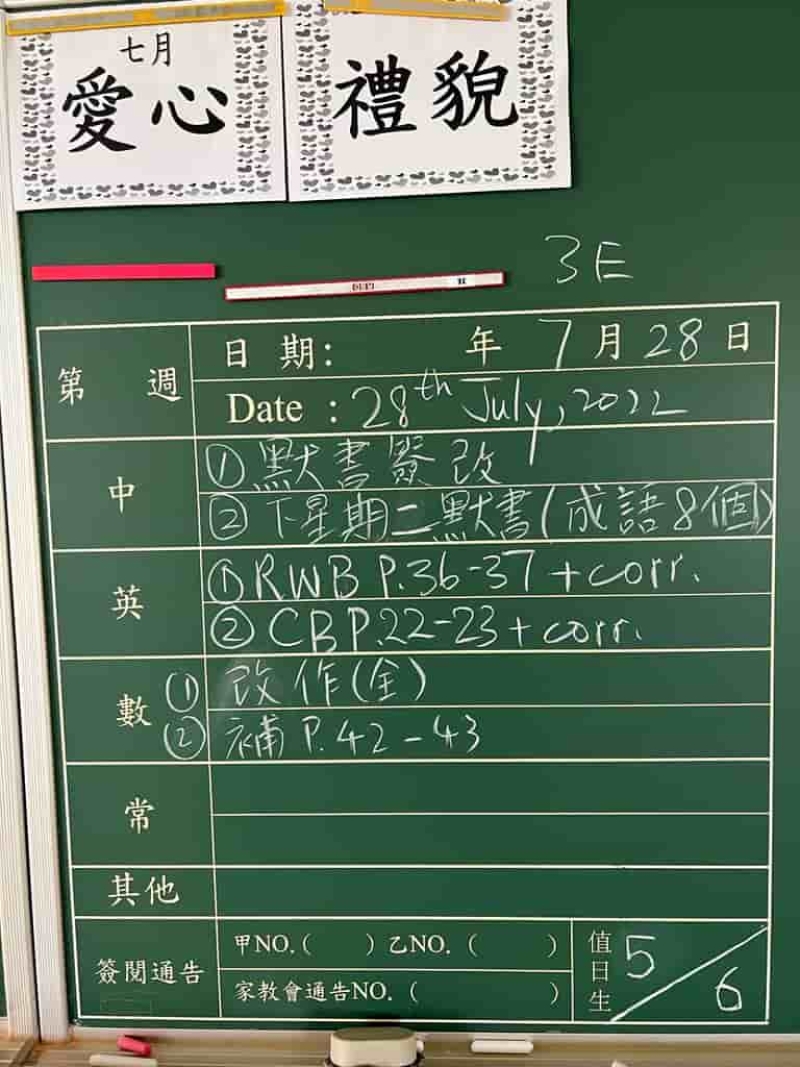 七月
愛心
禮貌
3E
第 週
日期: 年 7 月 28 日
Date : 28th July, 2022
中
① 默書簽改
② 下星期二默書(成語8個)
英
① RWB P.36-37 + corr.
② CB P.22-23 + corr.
數
① 改作(全)
② 補 P.42-43
常
其他
簽閱通告
甲NO.( ) 乙NO. ( )
家教會通告NO. ( )
值日生
5/6